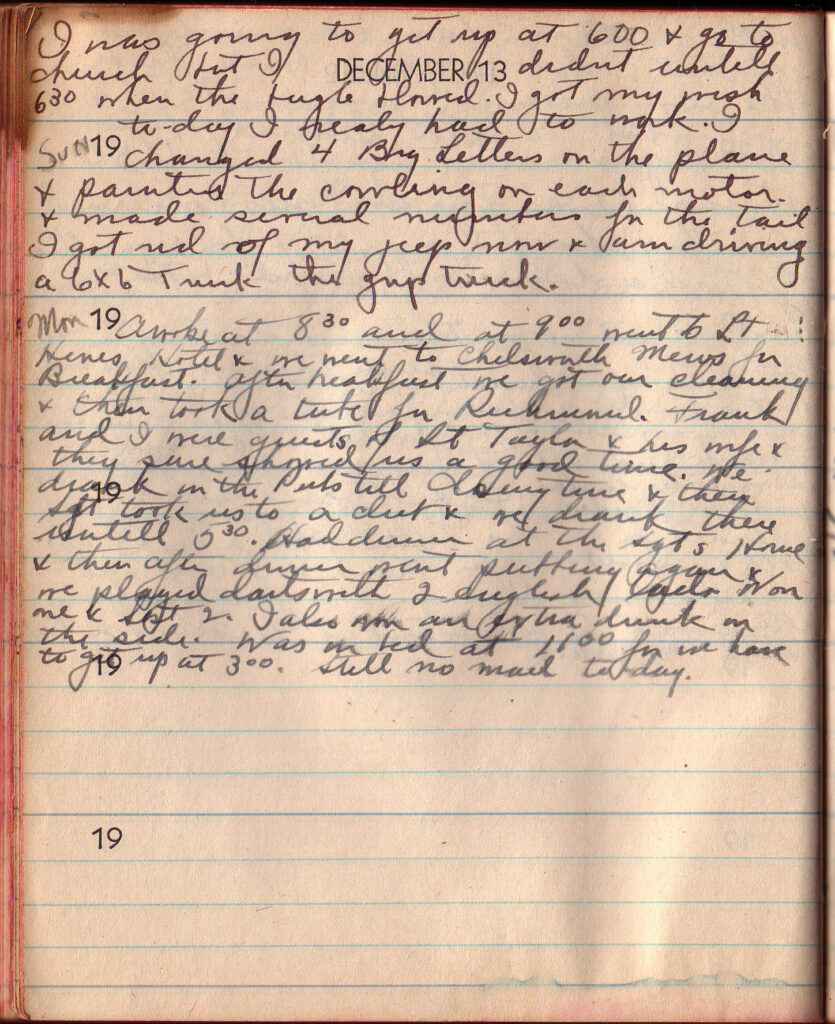 I was going to get up at 600 & go to
church but I DECEMBER 13 didnt untill
6³⁰ when the bugle blowed. I got my wish
to-day I realy had to work. I
Sun 19 changed 4 Big Letters on the plane
& painted the cowling on each motor.
& made several numbers for the tail
I got rid of my jeep now & am driving
a 6x6 Truck the truck.
Mon 19 Awoke at 8³⁰ and at 9⁰⁰ went to Lt
Hines Hotel & we went to Mews for
Breakfast. After breakfast we got our cleaning
& then took a tube for Richmond. Frank
and I were guests of Sgt Taylor & his wife &
they sure showed us a good time. We
drank in the Pubs till closing time & then
19
Sgt took us to a club & we drank there
untill 5³⁰. Had dinner at the Sgt's Home
& then after dinner went pubbing again &
we played darts with 2 english Won
one & lost 2. I also won an extra drink on
the side. Was in bed at 11⁰⁰ for we have
19 to get up at 3⁰⁰. Still no mail to-day.
19